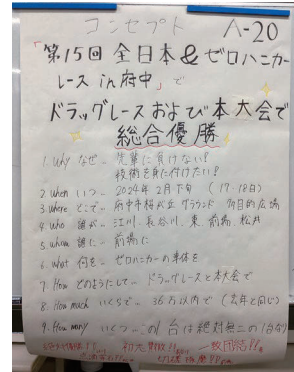 コンセプト
A-20
「第15回 全日本&ゼロハンカー
レース in 府中」で
ドラッグレースおよび本大会で
総合優勝
1. why なぜ… 先輩に負けない!
技術を身に付けたい!
2. when いつ… 2024年2月下旬 (17・18日)
3. where どこで… 府中市桜が丘 グラウンド 多目的広場
4. who 誰が… 江川、長谷川、東、前場、松井
5. whom 誰に… 前場に
6. what 何を… ゼロハンカーの車体を
7. How どのようにして… ドラッグレースと本大会で
8. How much いくらで… 36万以内で (去年と同じ)
9. How many いくつ… この1台は絶対無二の1台なり
初志貫徹!!
一致団結!!
切磋琢磨!!